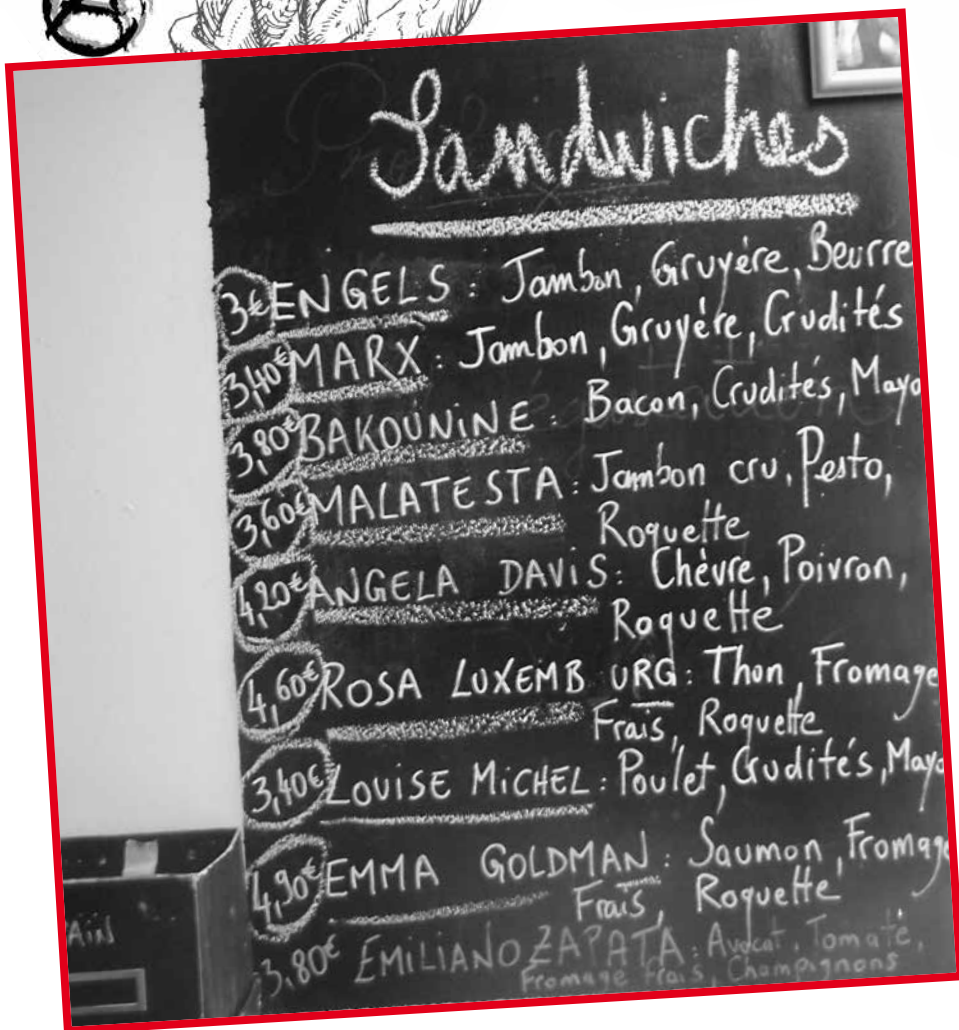 Sandwiches
3€ ENGELS : Jambon, Gruyére, Beurre
3,40€ MARX : Jambon, Gruyére, Crudités
3,80€ BAKOUNINE : Bacon, Crudités, Mayo
3,60€ MALATESTA : Jambon cru, Pesto,
Roquette
4,20€ ANGELA DAVIS : Chèvre, Poivron,
Roquette
4,60€ ROSA LUXEMBURG : Thon, Fromage
Frais, Roquette
3,40€ LOUISE MICHEL : Poulet, Crudités, Mayo
4,90€ EMMA GOLDMAN : Saumon, Fromage
Frais, Roquette
3,80€ EMILIANO ZAPATA : Avocat, Tomate,
Fromage frais, Champignons
AIN